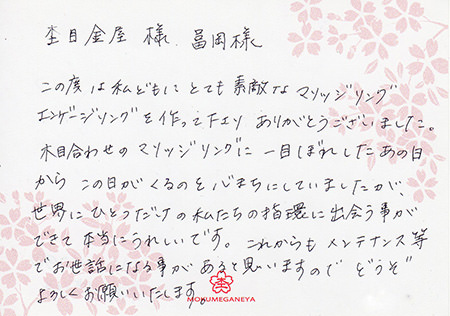 杢目金屋 様 冨岡様
この度は私どもにとても素敵なマリッジリング
エンゲージリングを作って下さり ありがとうございました。
木目合わせのマリッジリングに一目ぼれしたあの日
から この日がくるのを心まちにしていましたが、
世界にひとつだけの私たちの指環に出会う事が
できて本当にうれしいです。これからもメンテナンス等
でお世話になる事があると思いますので どうぞ
よろしくお願いいたします。
MOKUMEGANEYA